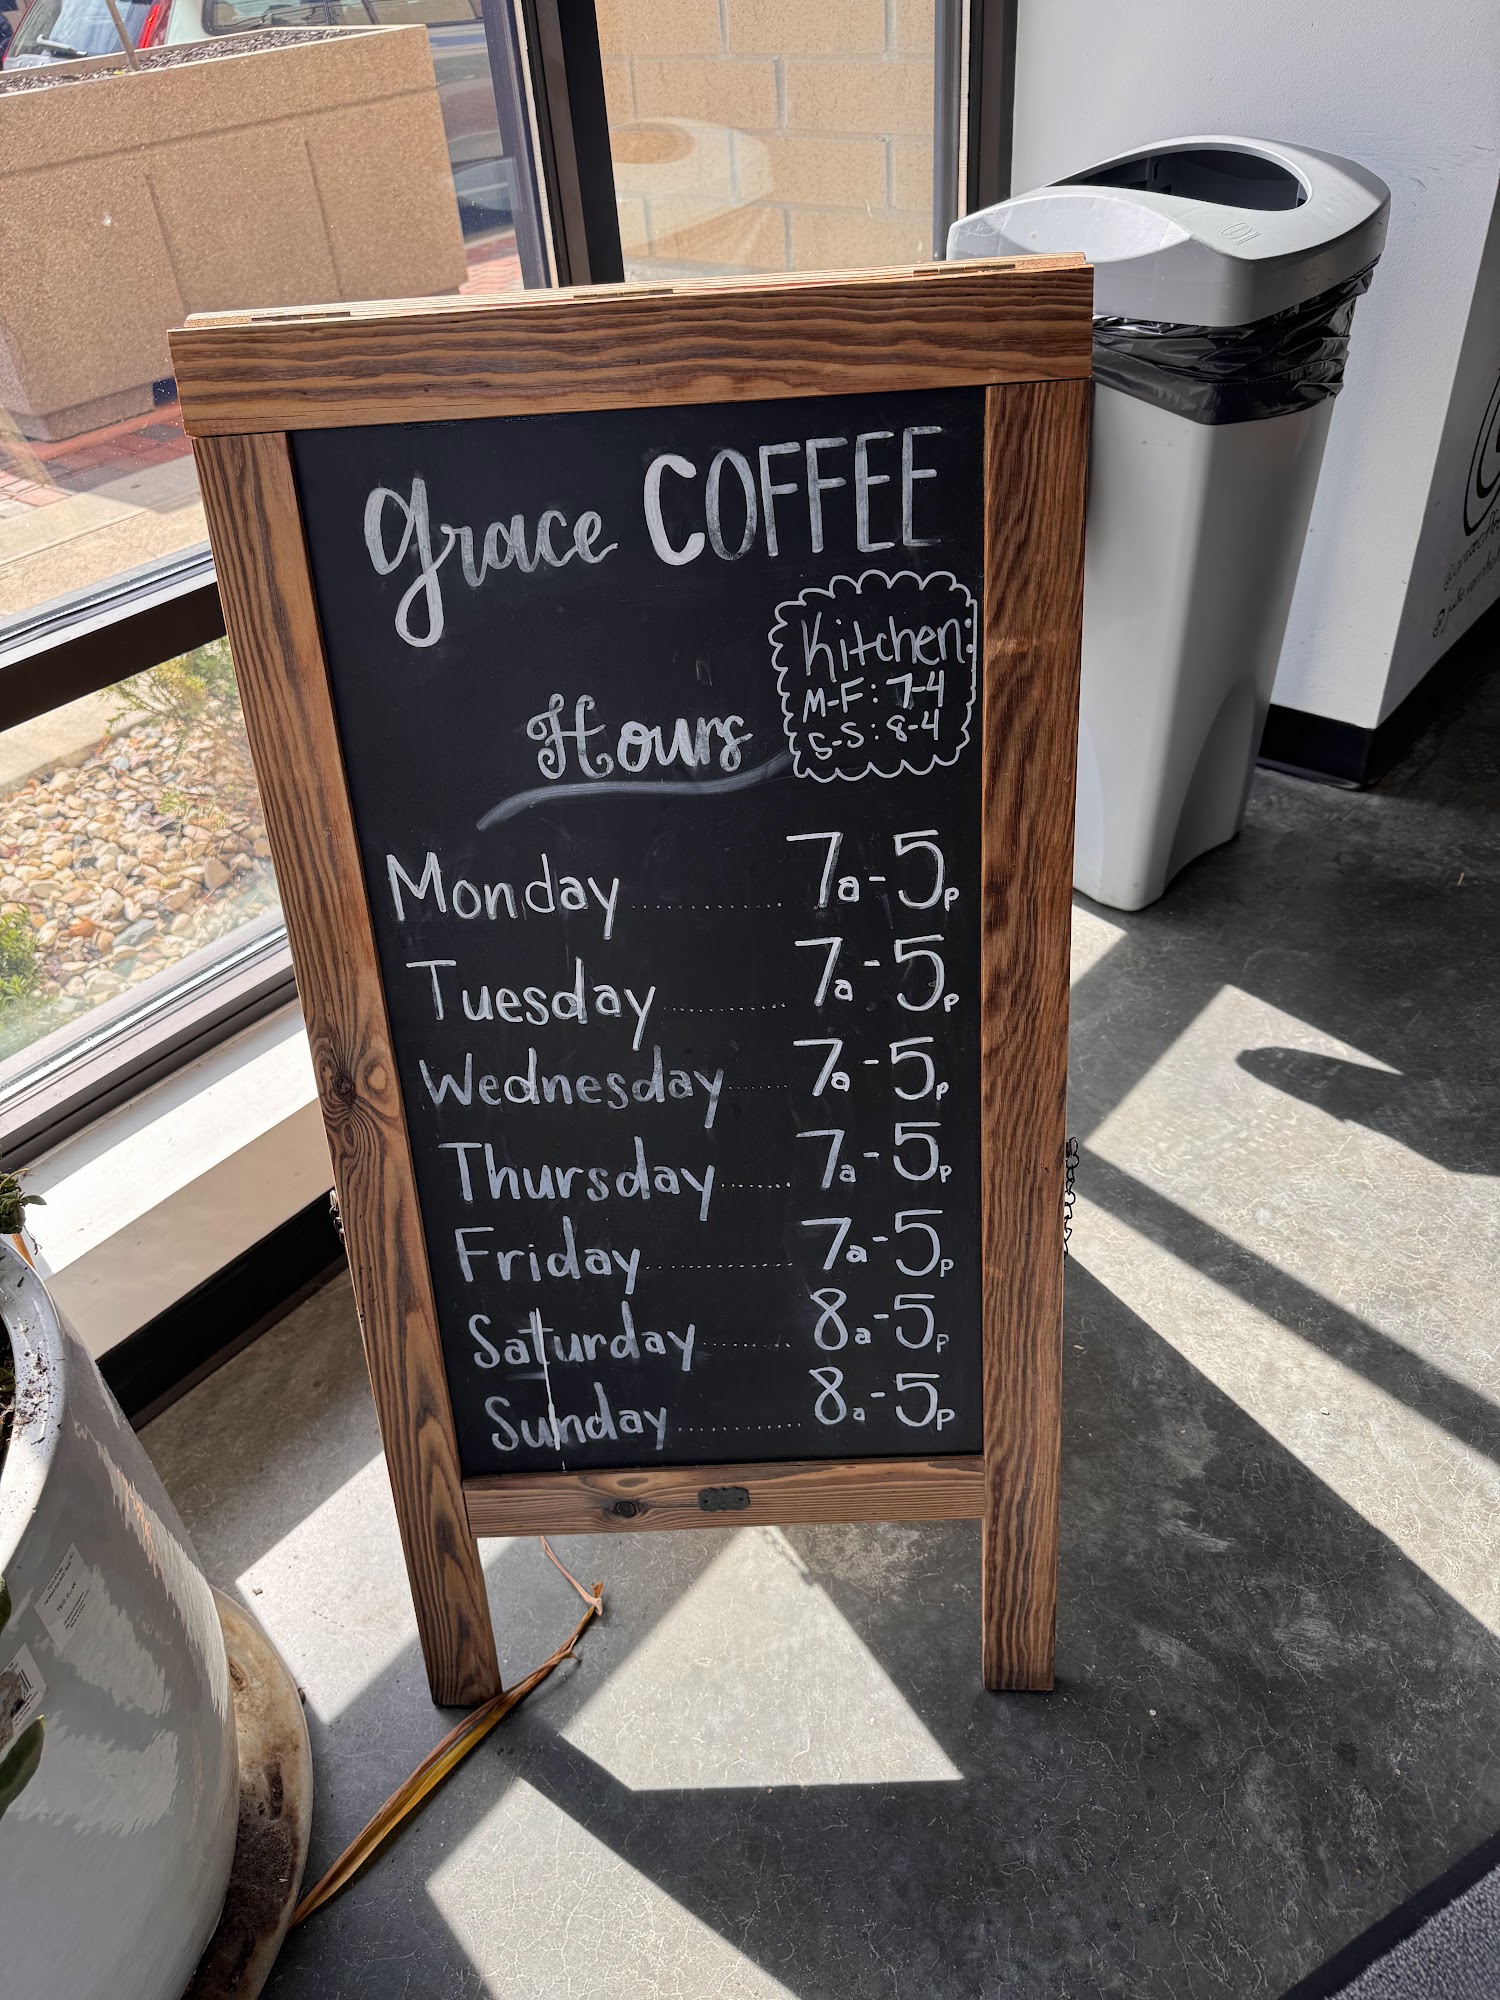 grace COFFEE
Kitchen:
M-F: 7-4
S-S: 8-4
Hours
Monday............ 7a-5p
Tuesday............ 7a-5p
Wednesday....... 7a-5p
Thursday....... 7a-5p
Friday............ 7a-5p
Saturday......... 8a-5p
Sunday............ 8a-5p